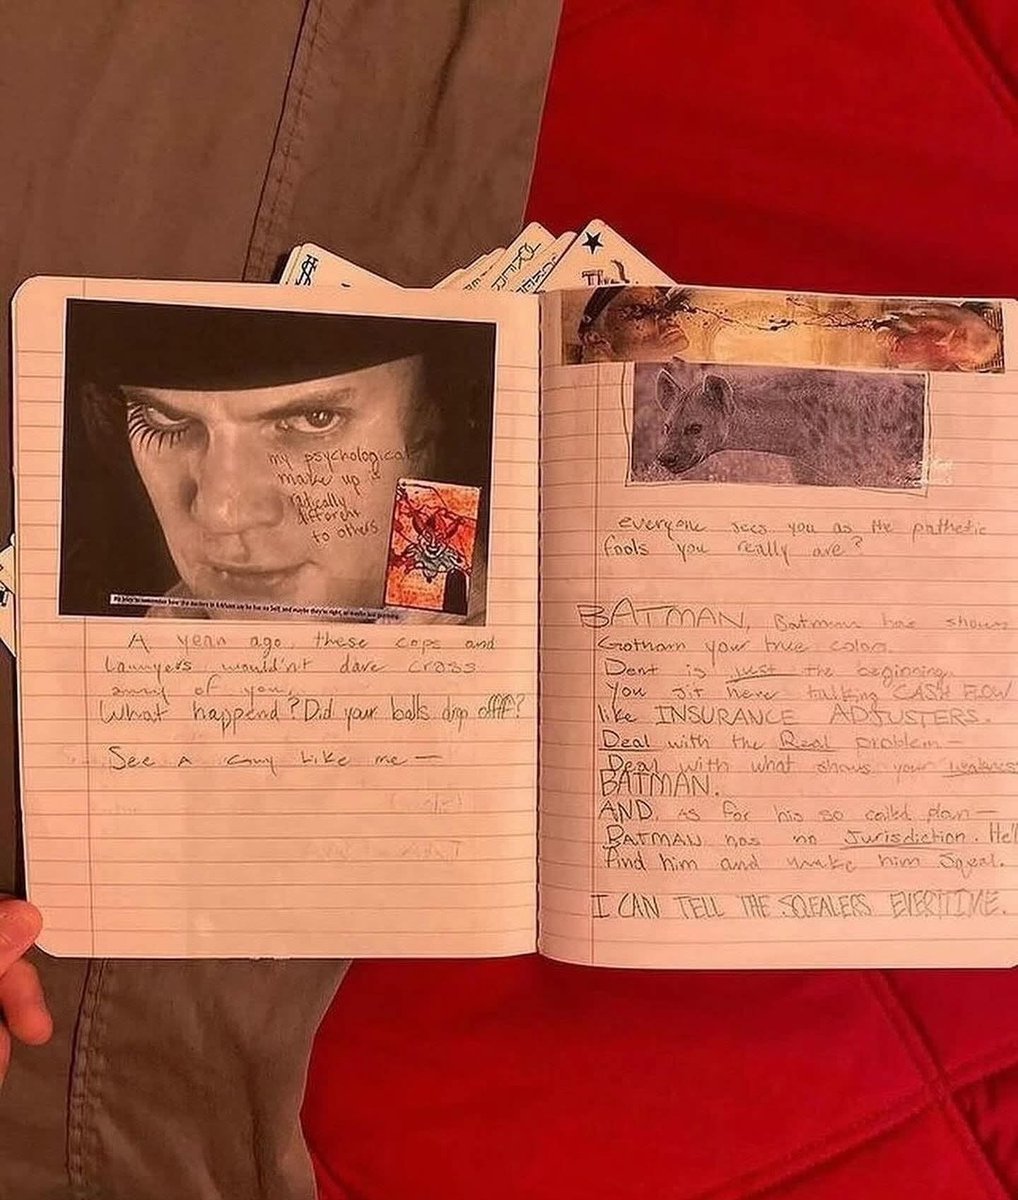 The
my psychological
make up is
radically
different
to others
A year ago, these cops and
Lawyers wouldn't dare cross
any of you,
What happend? Did your balls drop offff?
See A Guy Like me —
everyone sees you as the pathetic
fools you really are?
BATMAN, Batman has shown
Gotham your true colors.
Dent is just the beginning.
You sit here talking CASH FLOW
like INSURANCE ADJUSTERS.
Deal with the Real problem —
Deal with what shows your weakness
BATMAN.
AND, as for his so called plan —
BATMAN has no Jurisdiction. He'll
find him and make him Squeal.
I CAN TELL THE SQEALERS EVERITIME.